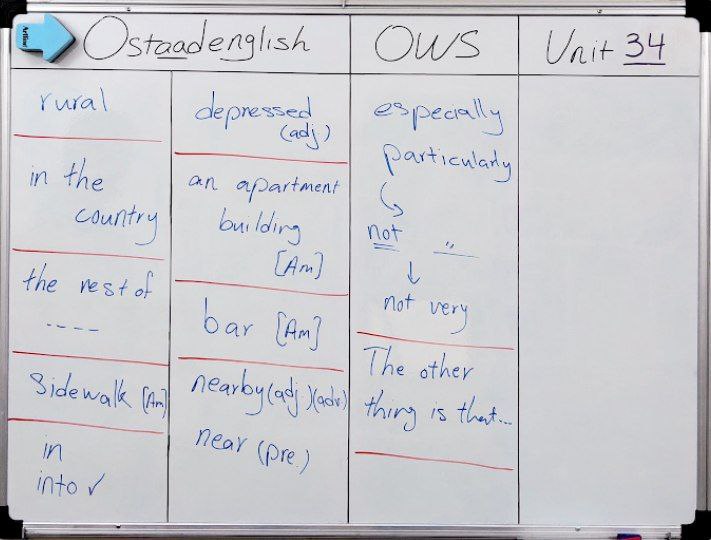 Artline
Ostaadenglish
OWS
Unit 34
rural
in the
country
the rest of
----
Sidewalk [Am]
in
into ✓
depressed
(adj)
an apartment
building
[Am]
bar [Am]
nearby (adj.)(adv.)
near (pre.)
especially
particularly
not "
not very
The other
thing is that...